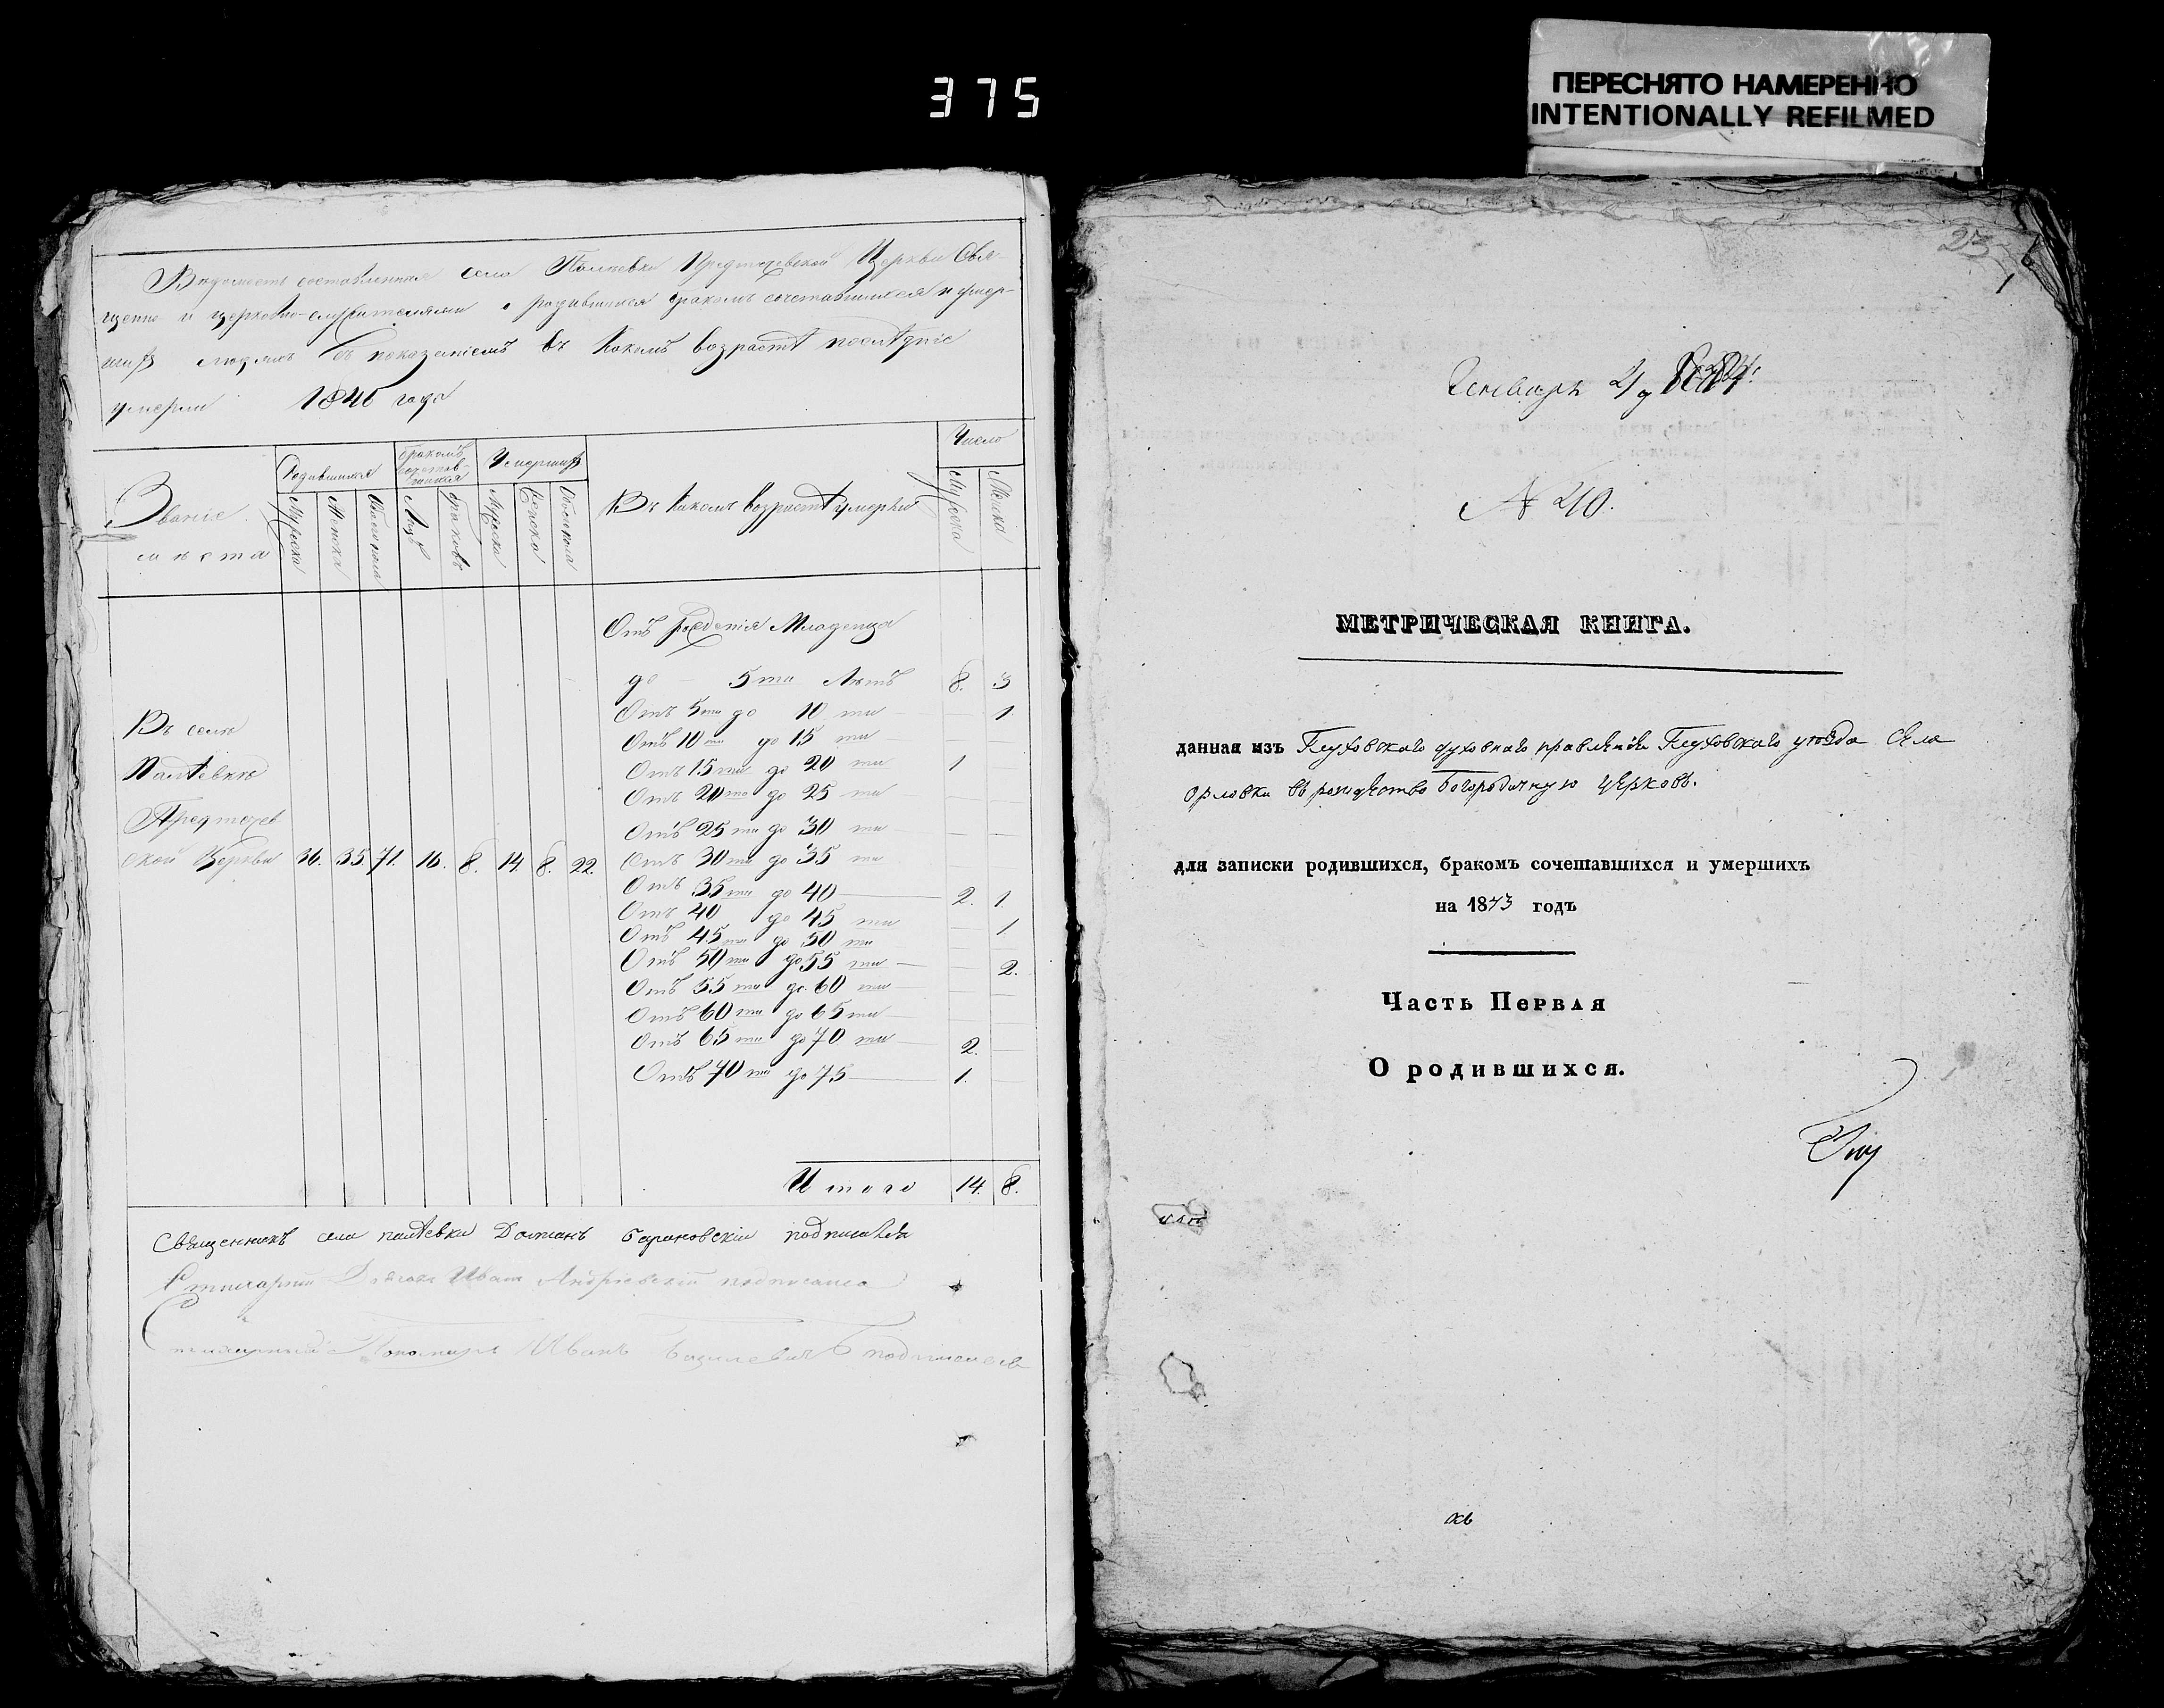 375
ПЕРЕСНЯТО НАМЕРЕННО
INTENTIONALLY REFILMED
Ведомость составленная села Предтечевской Церкви Свя-
щенно и церковно-служителями о родившихся бракомъ сочетавшихся и умер-
шихъ людяхъ съ показаніемъ въ какомъ возрастѣ послѣдніе
умерли 1846 года
Званіе мѣста
Родившихся
Бракомъ сочетав-шихся
Умершихъ
Въ какомъ возрастѣ умерли
Число
Мужеска
Женска
Обоего пола
Лицъ
Браковъ
Мужеска
Женска
Обоего пола
Мужеска
Женска
Отъ рожденія Младенца
до - 5ти Лѣтъ 8. 3
Отъ 5ти до 10 ти — 1.
Отъ 10ти до 15 ти
Отъ 15ти до 20 ти 1
Отъ 20ти до 25 ти
Отъ 25ти до 30 ти
Въ селѣ
Палѣевкѣ
Предтечев
ской Церкви 36. 35 71. 16. 8. 14. 8. 22.
Отъ 30ти до 35 ти
Отъ 35ти до 40 2. 1.
Отъ 40 до 45 ти — 1
Отъ 45ти до 50 ти
Отъ 50ти до 55 ти — 2.
Отъ 55ти до 60 ти
Отъ 60ти до 65 ти
Отъ 65ти до 70 ти 2.
Отъ 70ти до 75 1.
Итого 14. 8.
Священникъ села палѣевки Барановскій подписался
Иванъ Андріевскій подписался
Пономарь Иванъ подписался
23
1
Генваря
№ 210.
МЕТРИЧЕСКАЯ КНИГА.
данная изъ Глуховскаго духовнаго правленія Глуховскаго уѣзда Села
Орловки въ рождество Богородичную церковь.
для записки родившихся, бракомъ сочетавшихся и умершихъ
на 1843 годъ
Часть Первая
О родившихся.